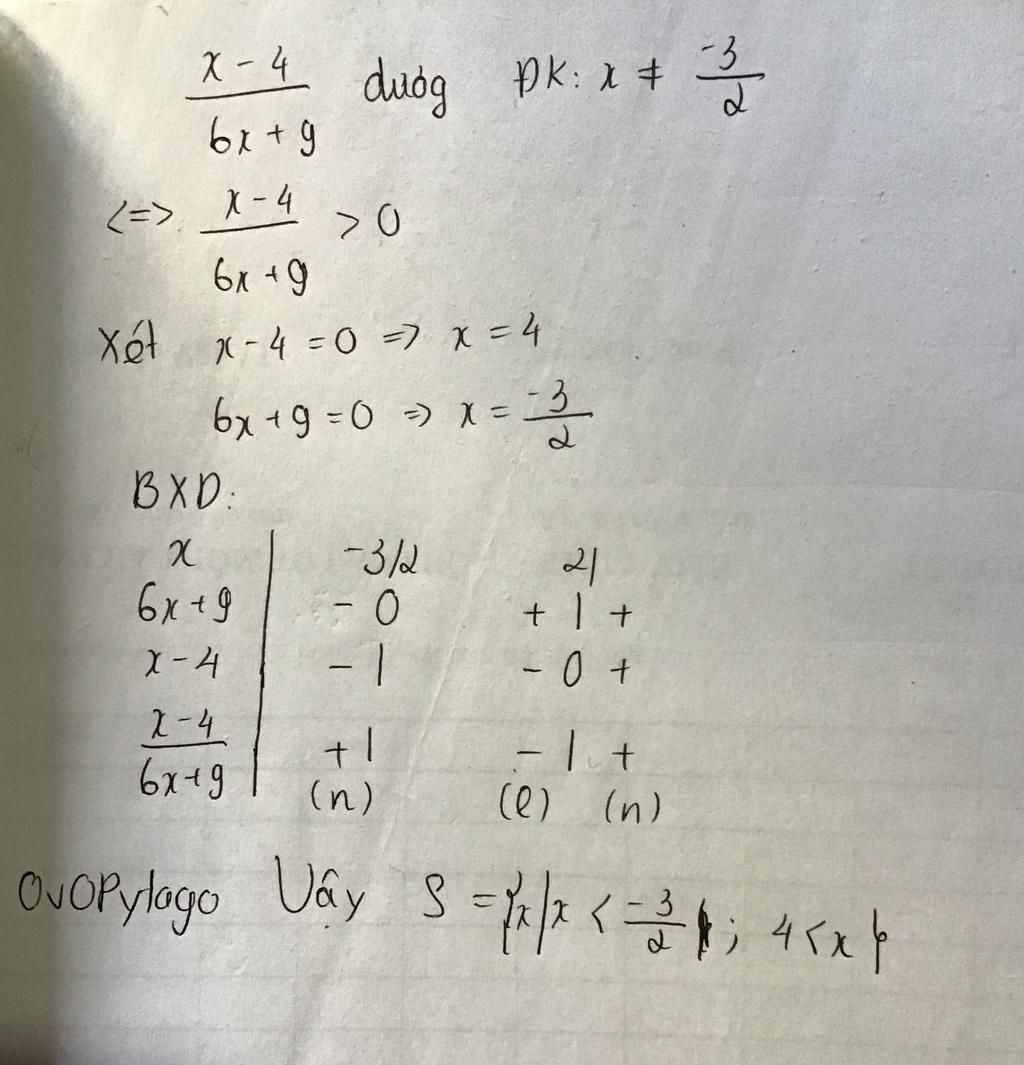 x - 4 / 6x + 9 dướg ĐK: x ≠ -3/2
<=> x - 4 / 6x + 9 > 0
Xét x - 4 = 0 => x = 4
6x + 9 = 0 => x = -3/2
BXD:
x | -3/2 4
6x + 9 | - 0 + | +
x - 4 | - | - 0 +
x - 4 / 6x + 9 | + | - | +
(n) (l) (n)
OvOPytago Vậy S = {x/x < -3/2; 4 < x}